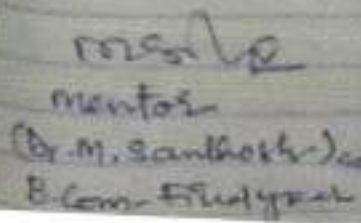 mentor
(Dr. M. Santhosh)
B.Com. Final year